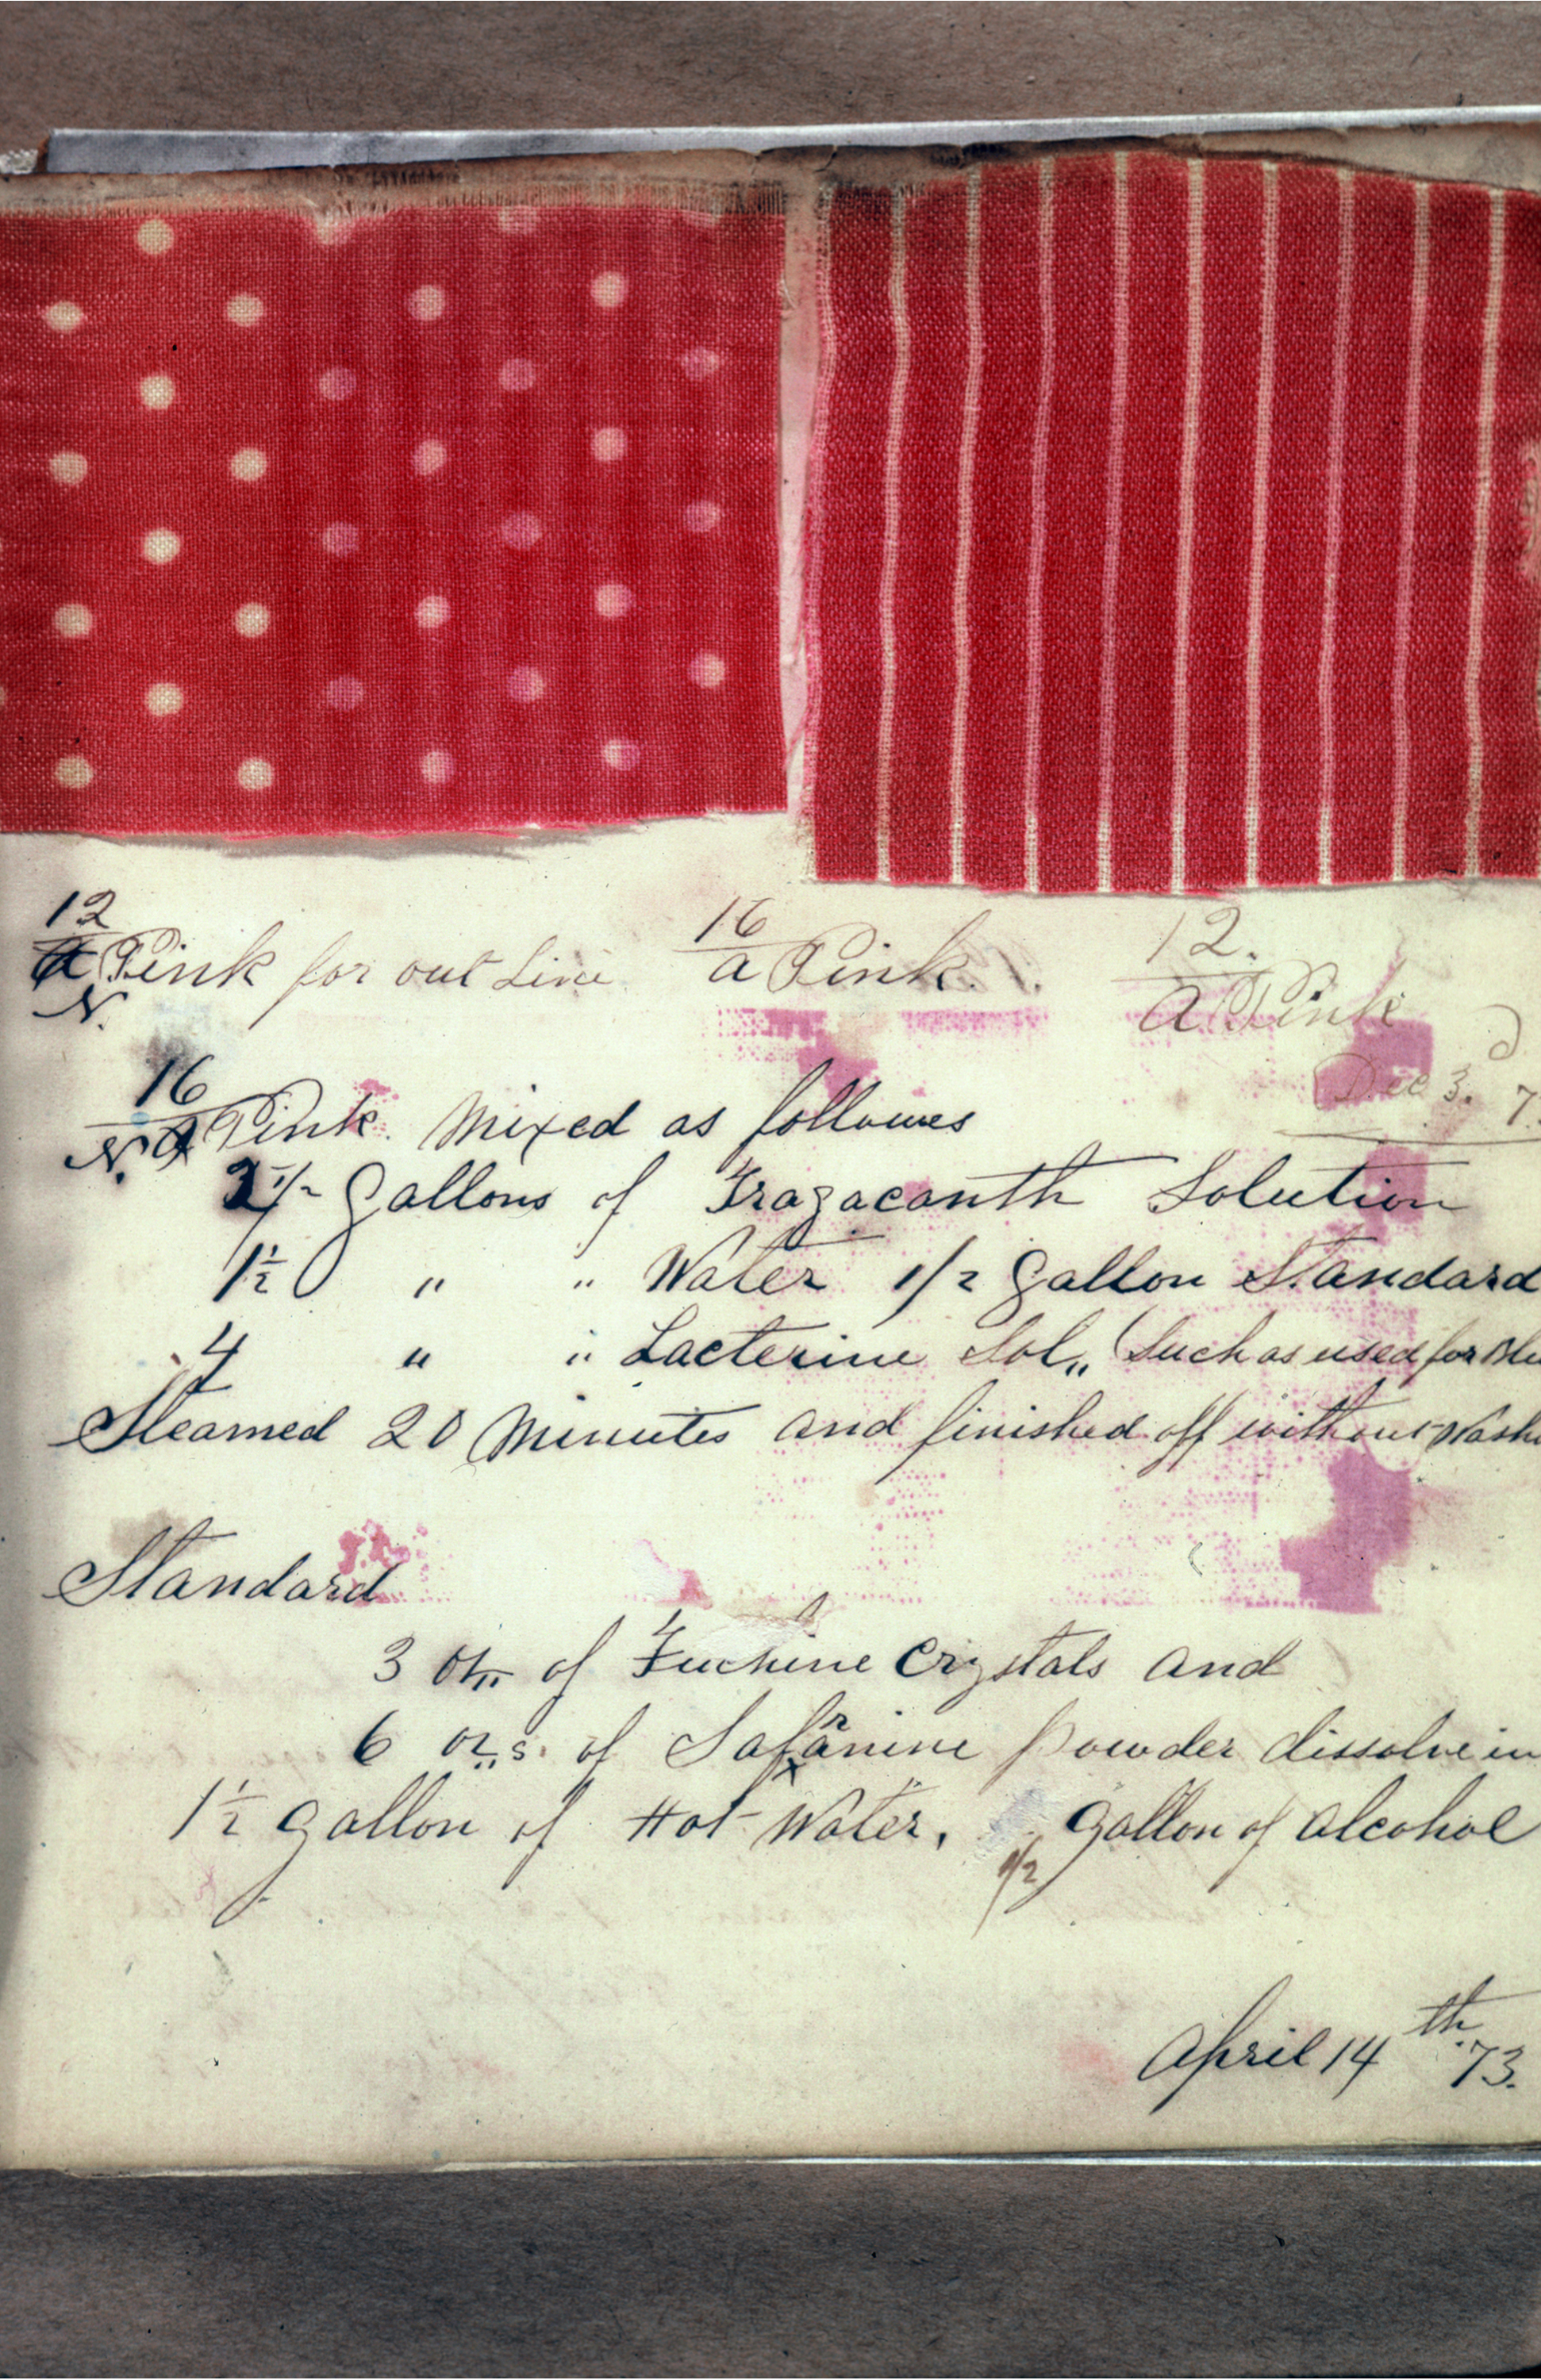 12 16 12.
a Pink for out Line a Pink. a Pink
N.
Dec 3. 7
16
N. a Pink. Mixed as followes
2 1/2 Gallons of Tragacanth Solution
1 1/2 " " Water 1/2 Gallon Standard
4 " " Lacterine Sol,, (Such as used for Blu
Steamed 20 Minutes and finished off without Washi
Standard
3 of Fuchine Crystals and
r
6 oz,,s. of Safanine powder dissolve in
x
1 1/2 gallon of Hot Water, 1/2 gallon of alcohol
April 14th 73.